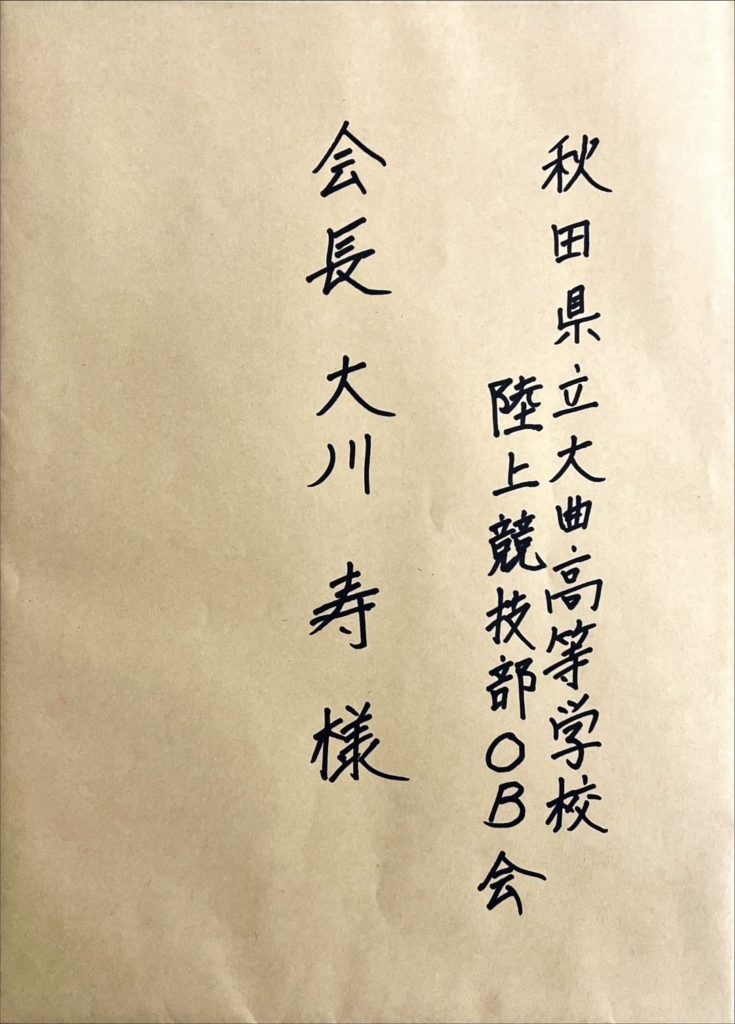 秋田県立大曲高等学校
陸上競技部OB会
会長 大川 寿 様